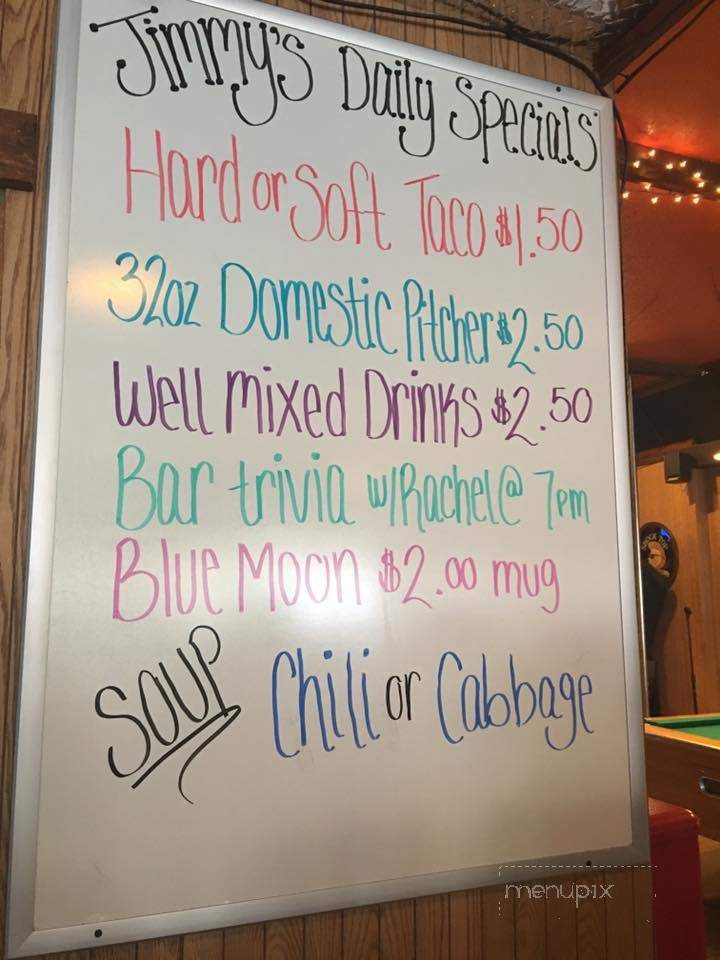 Jimmy's Daily Specials
Hard or Soft Taco $1.50
32oz Domestic Pitcher $2.50
Well mixed Drinks $2.50
Bar trivia w/Rachel @ 7pm
Blue Moon $2.00 mug
SOUP Chili or Cabbage
menupix